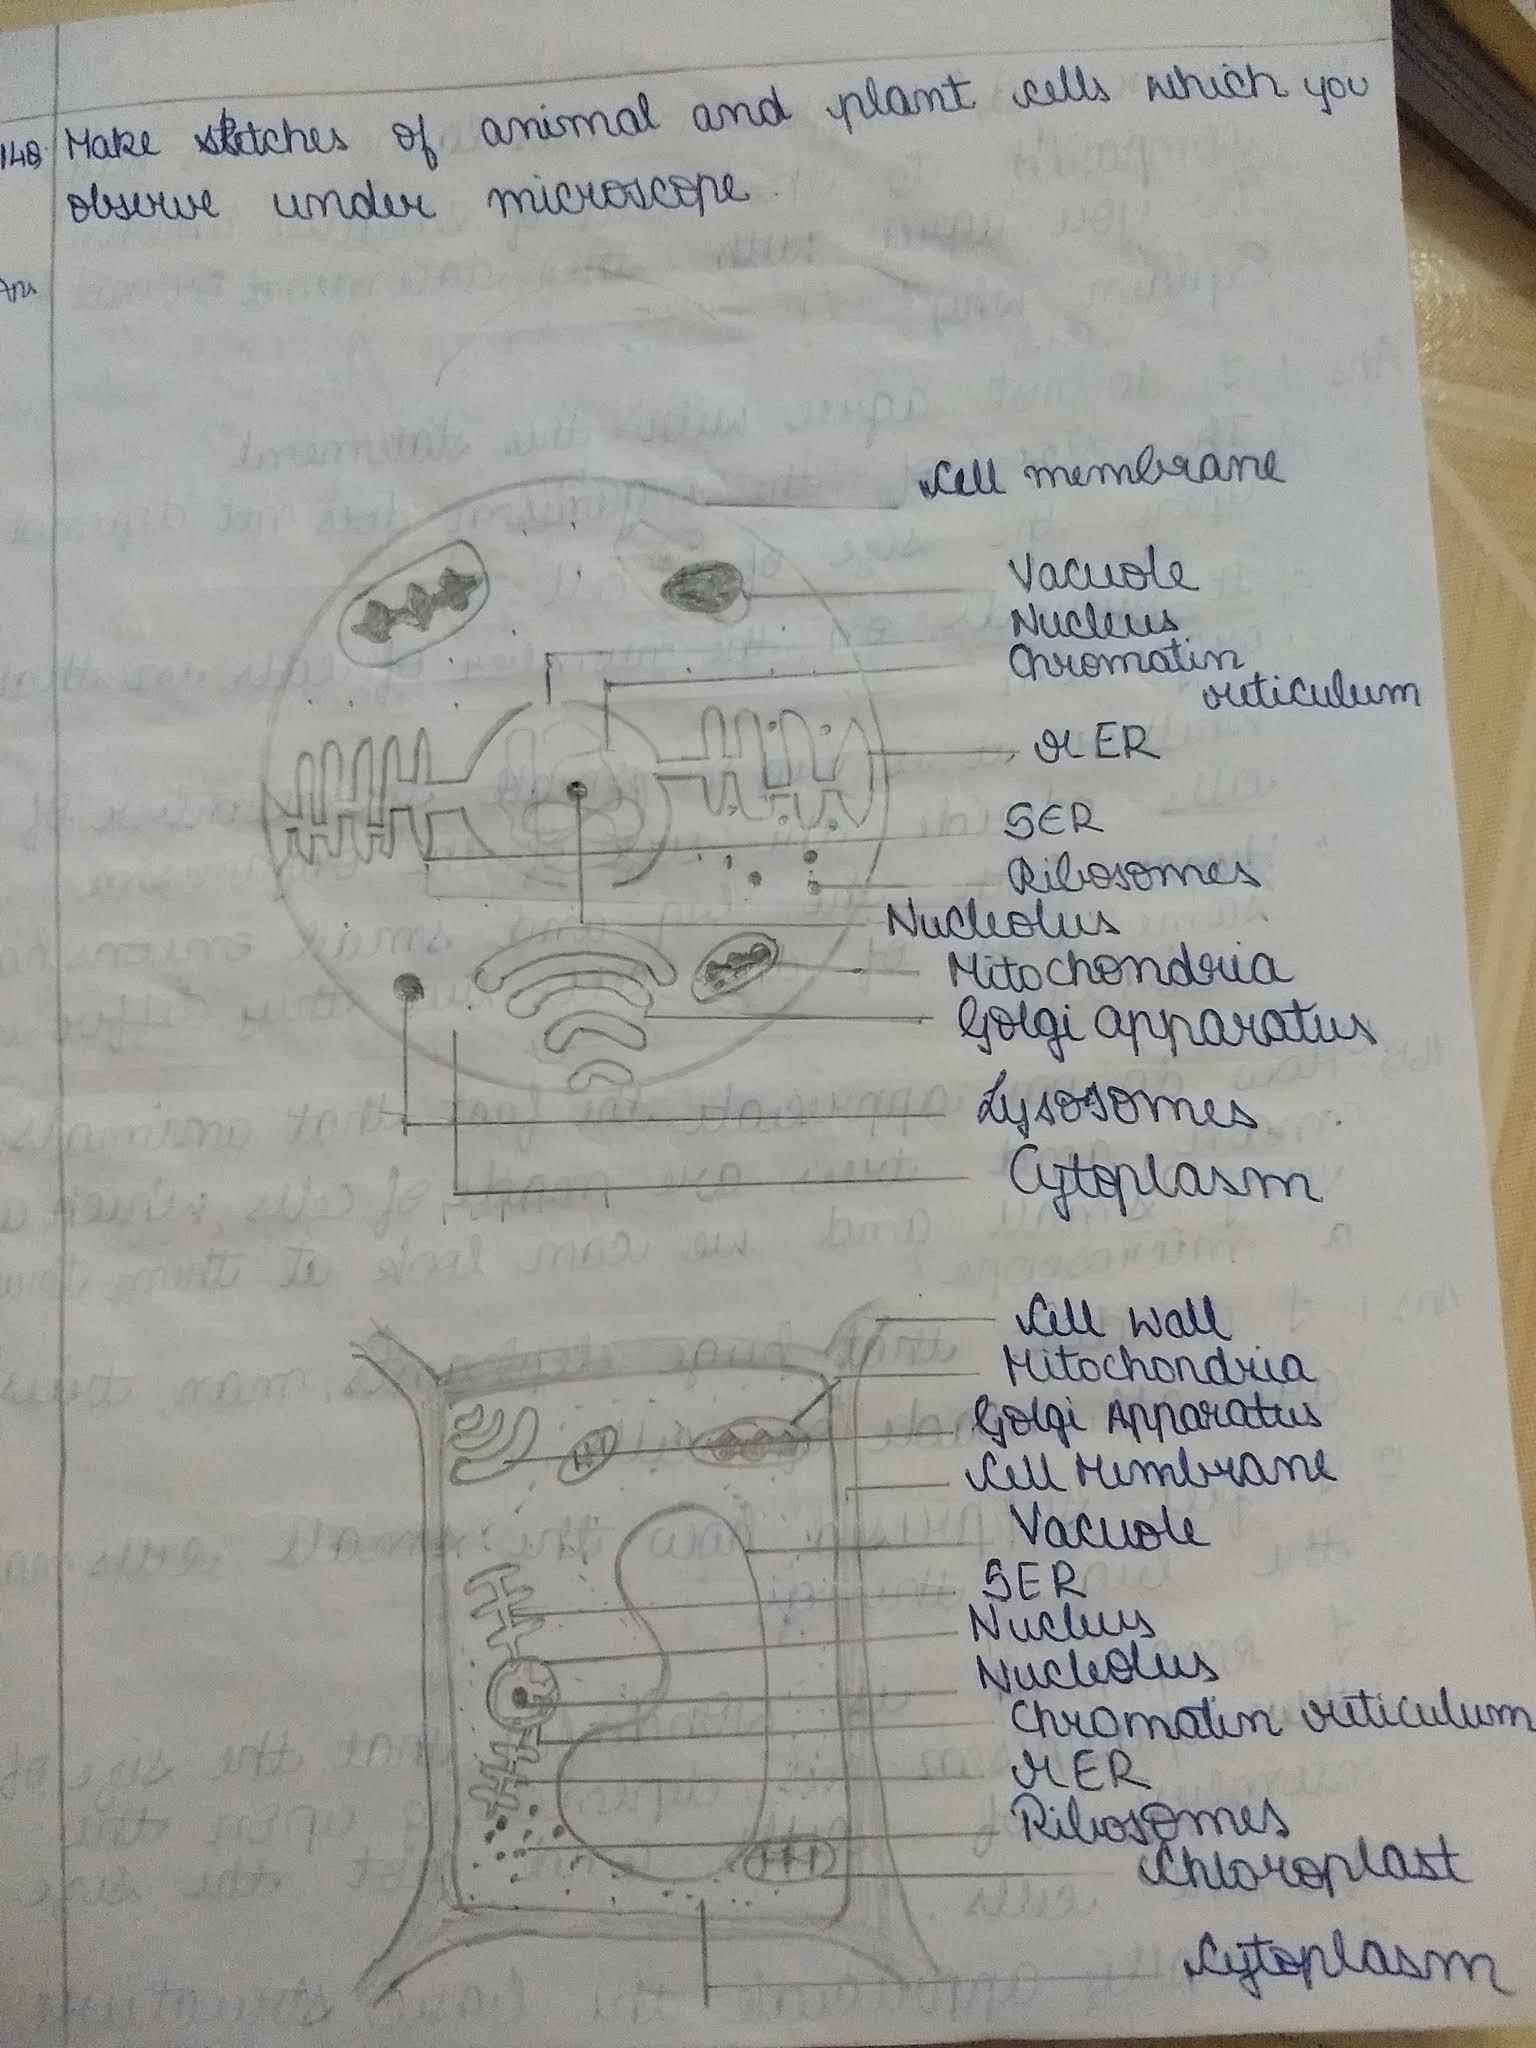 148. Make sketches of animal and plant cells which you
observe under microscope.
Ans
Cell membrane
Vacuole
Nucleus
Chromatin
reticulum
rER
SER
Ribosomes
Nucleolus
Mitochondria
Golgi apparatus
Lysosomes
Cytoplasm
Cell wall
Mitochondria
Golgi Apparatus
Cell Membrane
Vacuole
SER
Nucleus
Nucleolus
Chromatin reticulum
rER
Ribosomes
Chloroplast
Cytoplasm